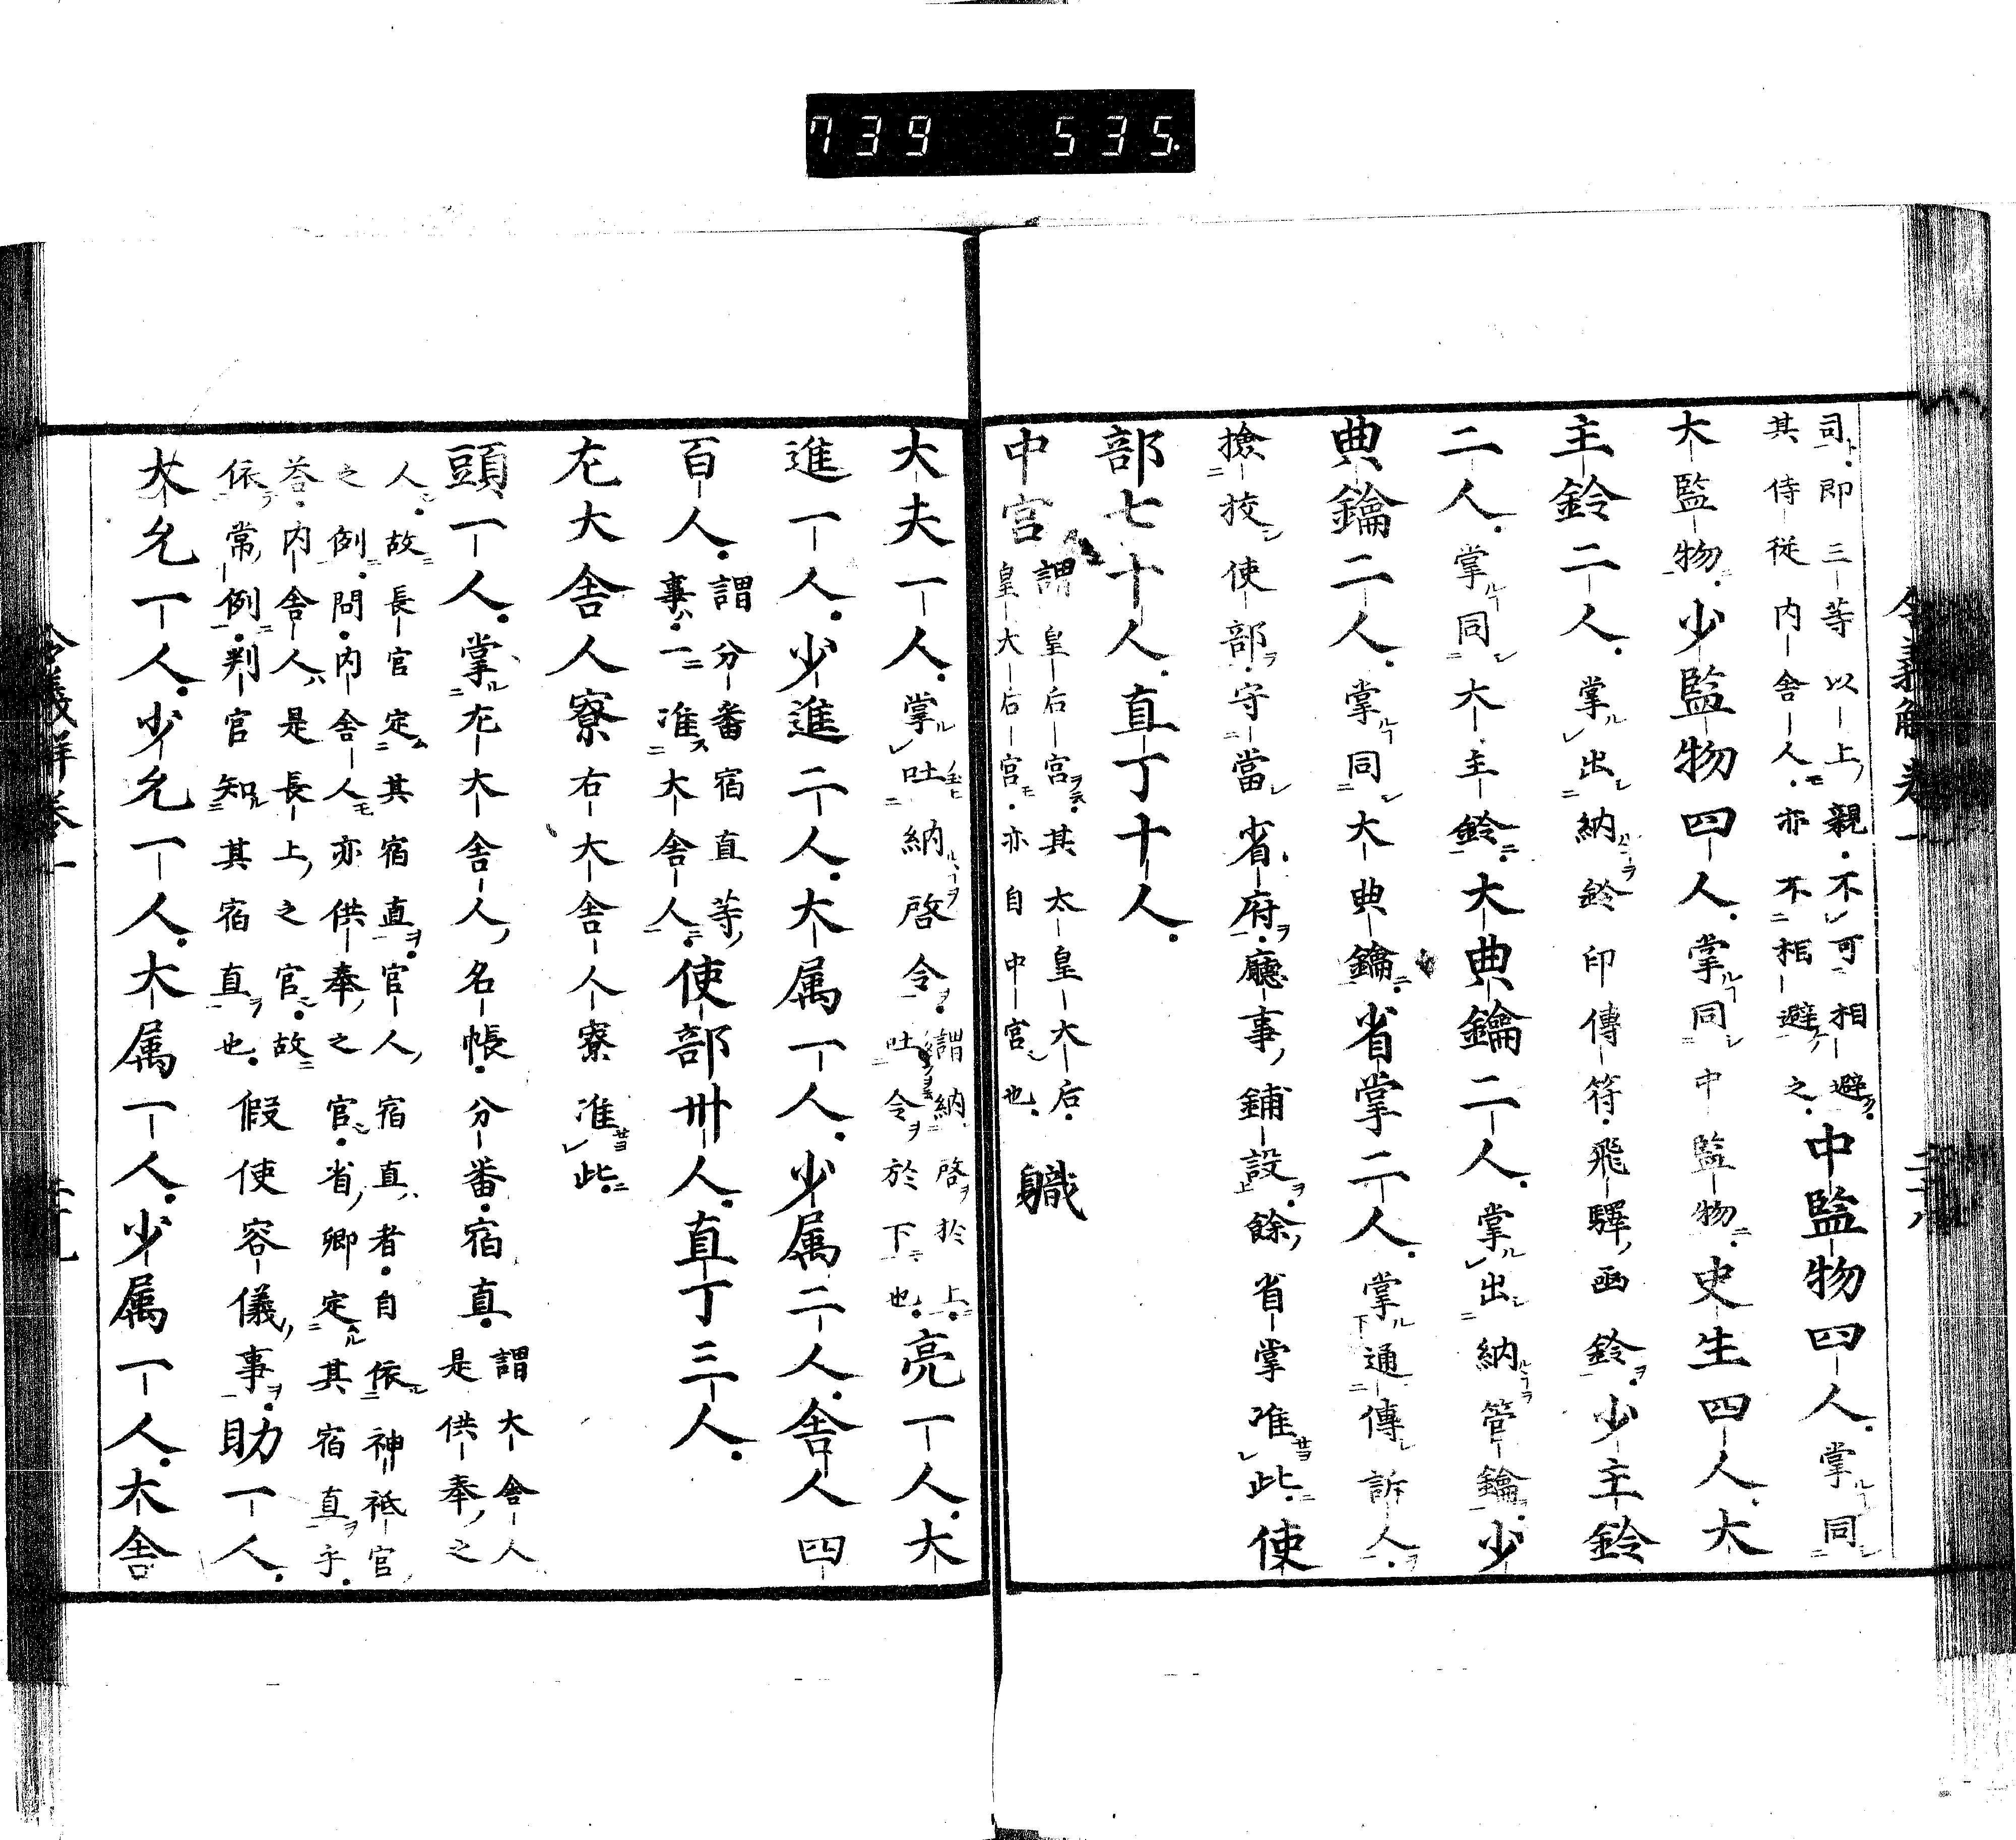 739 535.
司即三等以上親不可相避
其侍従内舎人亦不相避之
中監物四人掌同
大監物少監物四人掌同中監物史生四人大
主鈴二人掌出納鈴印傳符飛驛凾鈴少主鈴
二人掌同大主鈴大典鑰二人掌出納管鑰少
典鑰二人掌同大典鑰省掌二人掌通傳訴人
撿挍使部守當省府廳事鋪設餘省掌准此使
部七十人直丁十人
中宮
謂皇后宮其太皇大后
皇大后宮亦自中宮也
職
大夫一人掌吐納啓令
謂納啓於上
吐令於下也
亮一人大
進一人少進二人大属一人少属二人舎人四
百人
謂分番宿直等
事一准大舎人
使部卅人直丁三人
左大舎人寮右大舎人寮准此
頭一人掌左大舎人名帳分番宿直
謂大舎人
是供奉之
人故長官定其宿直官人宿直者自依神祇官
之例問内舎人亦供奉之官省卿定其宿直乎
荅内舎人是長上之官故
依常例判官知其宿直也
假使容儀事助一人
大允一人少允一人大属一人少属一人大舎